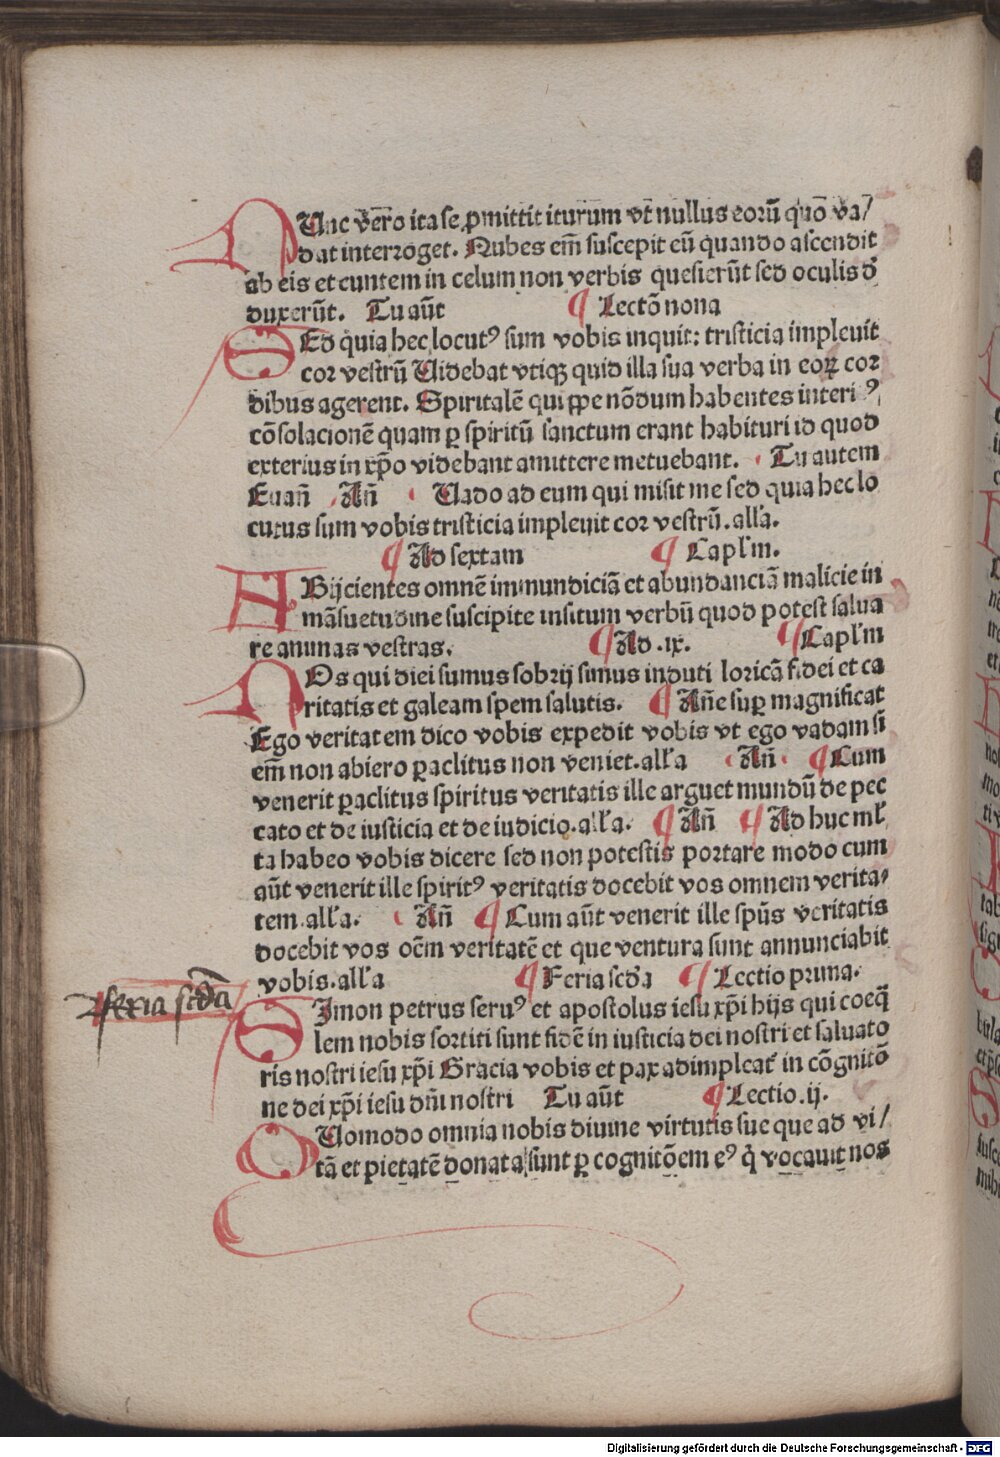 NUnc vero ita se ꝑmittit iturum vt nullus eorū quo va/
dat interroget. Nubes em̄ suscepit eū quando ascendit
ab eis et euntem in celum non verbis quesierūt sed oculis d̄
duxerūt. Tu aūt ¶ Lectō nona
SEd quia hec locutꝰ sum vobis inquit: tristicia impleuit
cor vestrū Uidebat vtiqꝫ quid illa sua verba in eoꝝ cor
dibus agerent. Spiritalē qui ꝓpe nōdum habentes interiꝰ,
cōsolacionē quam ꝑ spiritū sanctum erant habituri id quod
exterius in xp̄o videbant amittere metuebant. Tu autem
Euan̄ An̄ Uado ad eum qui misit me sed quia hec lo
cutus sum vobis tristicia impleuit cor vestrū. all'a.
¶ Ad sextam ¶ Capl'm.
ABijcientes omnē immundiciā et abundanciā malicie in
māsuetudine suscipite insitum verbū quod potest salua
re animas vestras. ¶ Ad .ix. ¶ Capl'm
NOs qui diei sumus sobrij simus induti loricā fidei et ca
ritatis et galeam spem salutis. ¶ An̄e suꝑ magnificat
Ego veritatem dico vobis expedit vobis vt ego vadam si
em̄ non abiero ꝑaclitus non veniet. all'a An̄ ¶ Cum
venerit ꝑaclitus spiritus veritatis ille arguet mundū de pec
cato et de iusticia et de iudicio. all'a. ¶ An̄ ¶ Ad huc ml'
ta habeo vobis dicere sed non potestis portare modo cum
aūt venerit ille spiritꝰ veritatis docebit vos omnem verita/
tem. all'a. An̄ ¶ Cum aūt venerit ille spūs veritatis
docebit vos oēm veritatē et que ventura sunt annunciabit
vobis. all'a ¶ Feria scd'a ¶ Lectio prima.
feria scd'a
SImon petrus seruꝰ et apostolus iesu xp̄i hijs qui coeq̄
lem nobis sortiti sunt fidē in iusticia dei nostri et saluato
ris nostri iesu xp̄i Gracia vobis et pax adimpleat' in cōgnitō
ne dei xp̄i iesu dn̄i nostri Tu aūt ¶ Lectio .ij.
QUomodo omnia nobis diuine virtutis sue que ad vi/
tā et pietatē donata sunt ꝑ cognitōem eꝰ q' vocauit nos
Digitalisierung gefördert durch die Deutsche Forschungsgemeinschaft - DFG